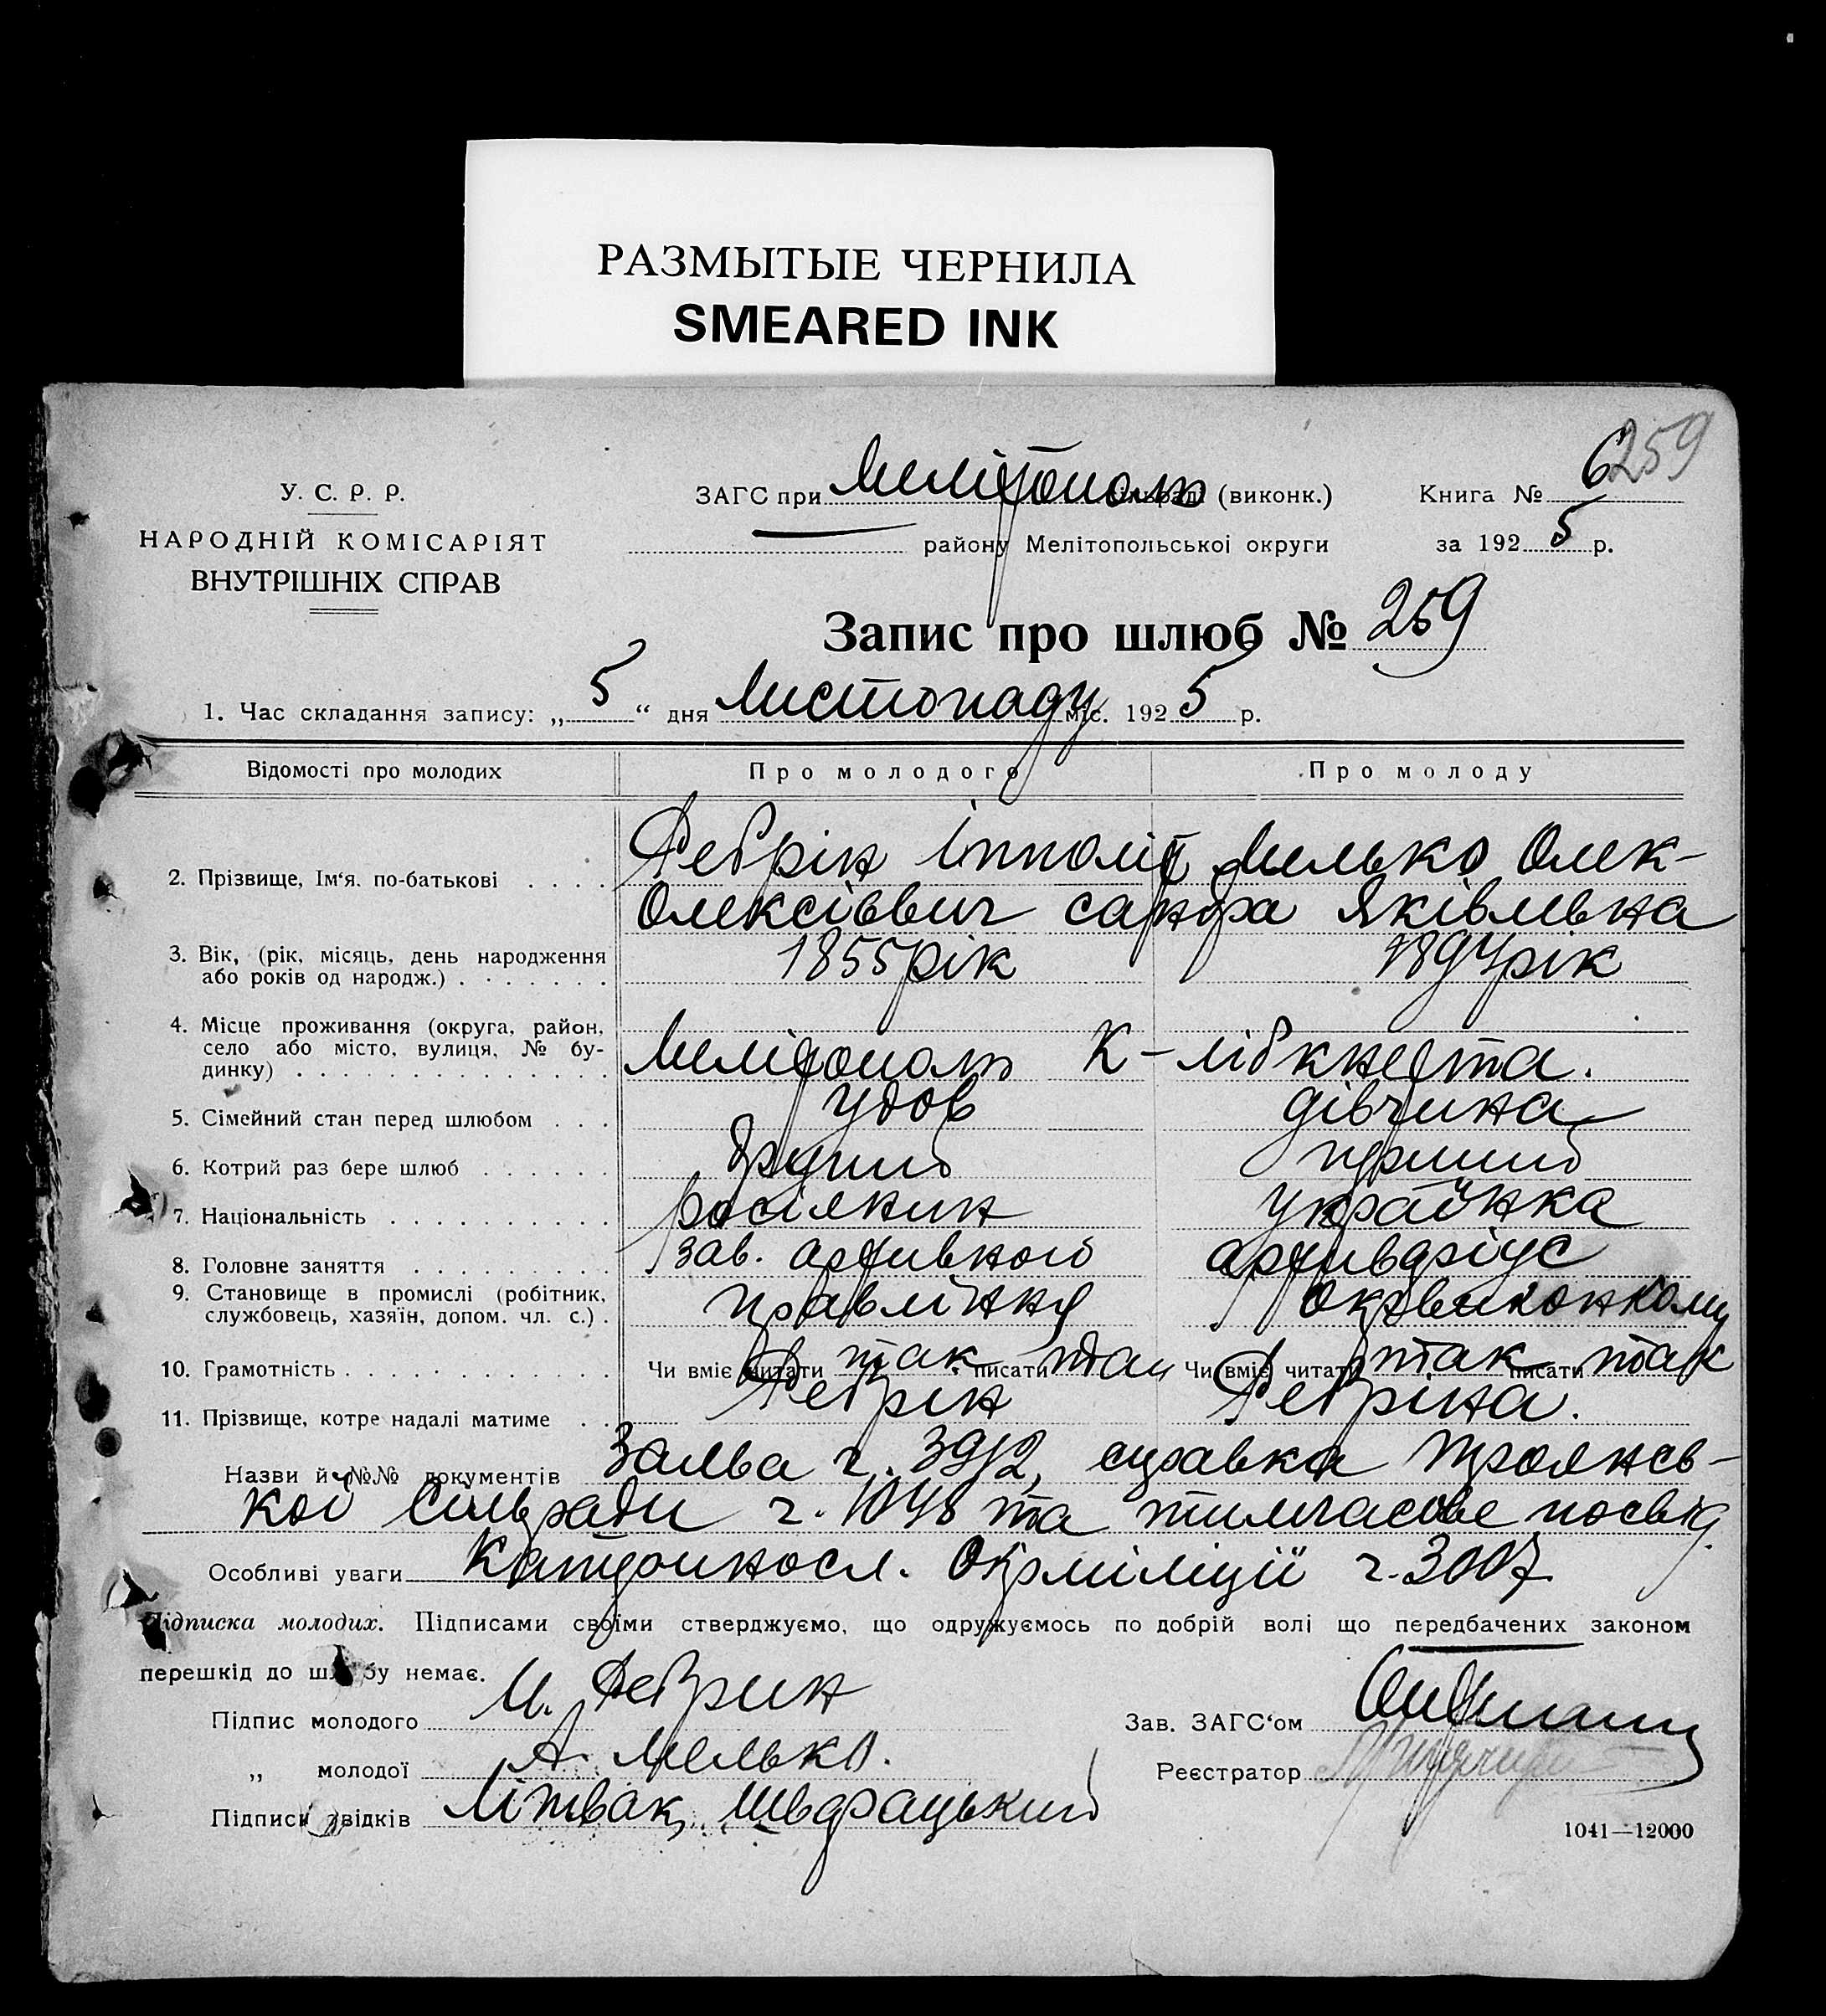 РАЗМЫТЫЕ ЧЕРНИЛА
SMEARED INK
259
У. С. Р. Р.
НАРОДНІЙ КОМІСАРІЯТ
ВНУТРІШНІХ СПРАВ
ЗАГС при Мелітополь сільраді (виконк.)
Книга № 6
району Мелітопольської округи
за 1925 р.
Запис про шлюб № 259
1. Час складання запису: „5“ дня Листопаду міс. 1925 р.
Відомості про молодих Про молодого Про молоду
2. Прізвище, Ім‘я. по-батькові
Ребрін Іпполіт Мелько Олек-
Олексіввич сандра Яківлевна
3. Вік, (рік, місяць, день народження
або років од народж.)
1855 рік 1894 рік
4. Місце проживання (округа, район,
село або місто, вулиця, № бу-
динку)
Мелітополь К-лібкнехта.
5. Сімейний стан перед шлюбом удов дівчина
6. Котрий раз бере шлюб другий перший
7. Національність росіянин українка
8. Головне заняття зав. архивної архиваріус
9. Становище в промислі (робітник,
службовець, хазяїн, допом. чл. с.)
правління Окрвиконкому
10. Грамотність Чи вміє читати так писати так Чи вміє читати так писати так
11. Прізвище, котре надалі матиме Ребрін Ребріна.
Назви й №№ документів Заява ч. 3912, справка Троянсь-
кої Сільради ч. 1048 та тимчасове посвід.
Особливі уваги Окрміліції ч. 3007
Підписка молодих. Підписами своїми стверджуємо, що одружуємось по добрій волі що передбачених законом
перешкід до шлюбу немає.
Підпис молодого И. Ребрин
Зав. ЗАГС‘ом
„ молодої А. Мелько.
Реєстратор
Підписи звідків Літвак,
1041—12000